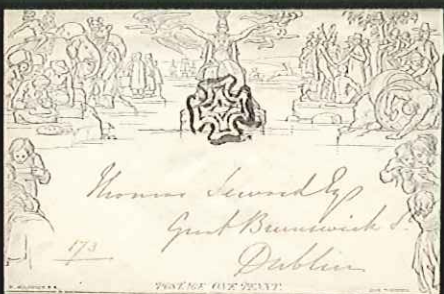 Thomas Seward Esq
Great Brunswick St
173
Dublin
POSTAGE ONE PENNY.